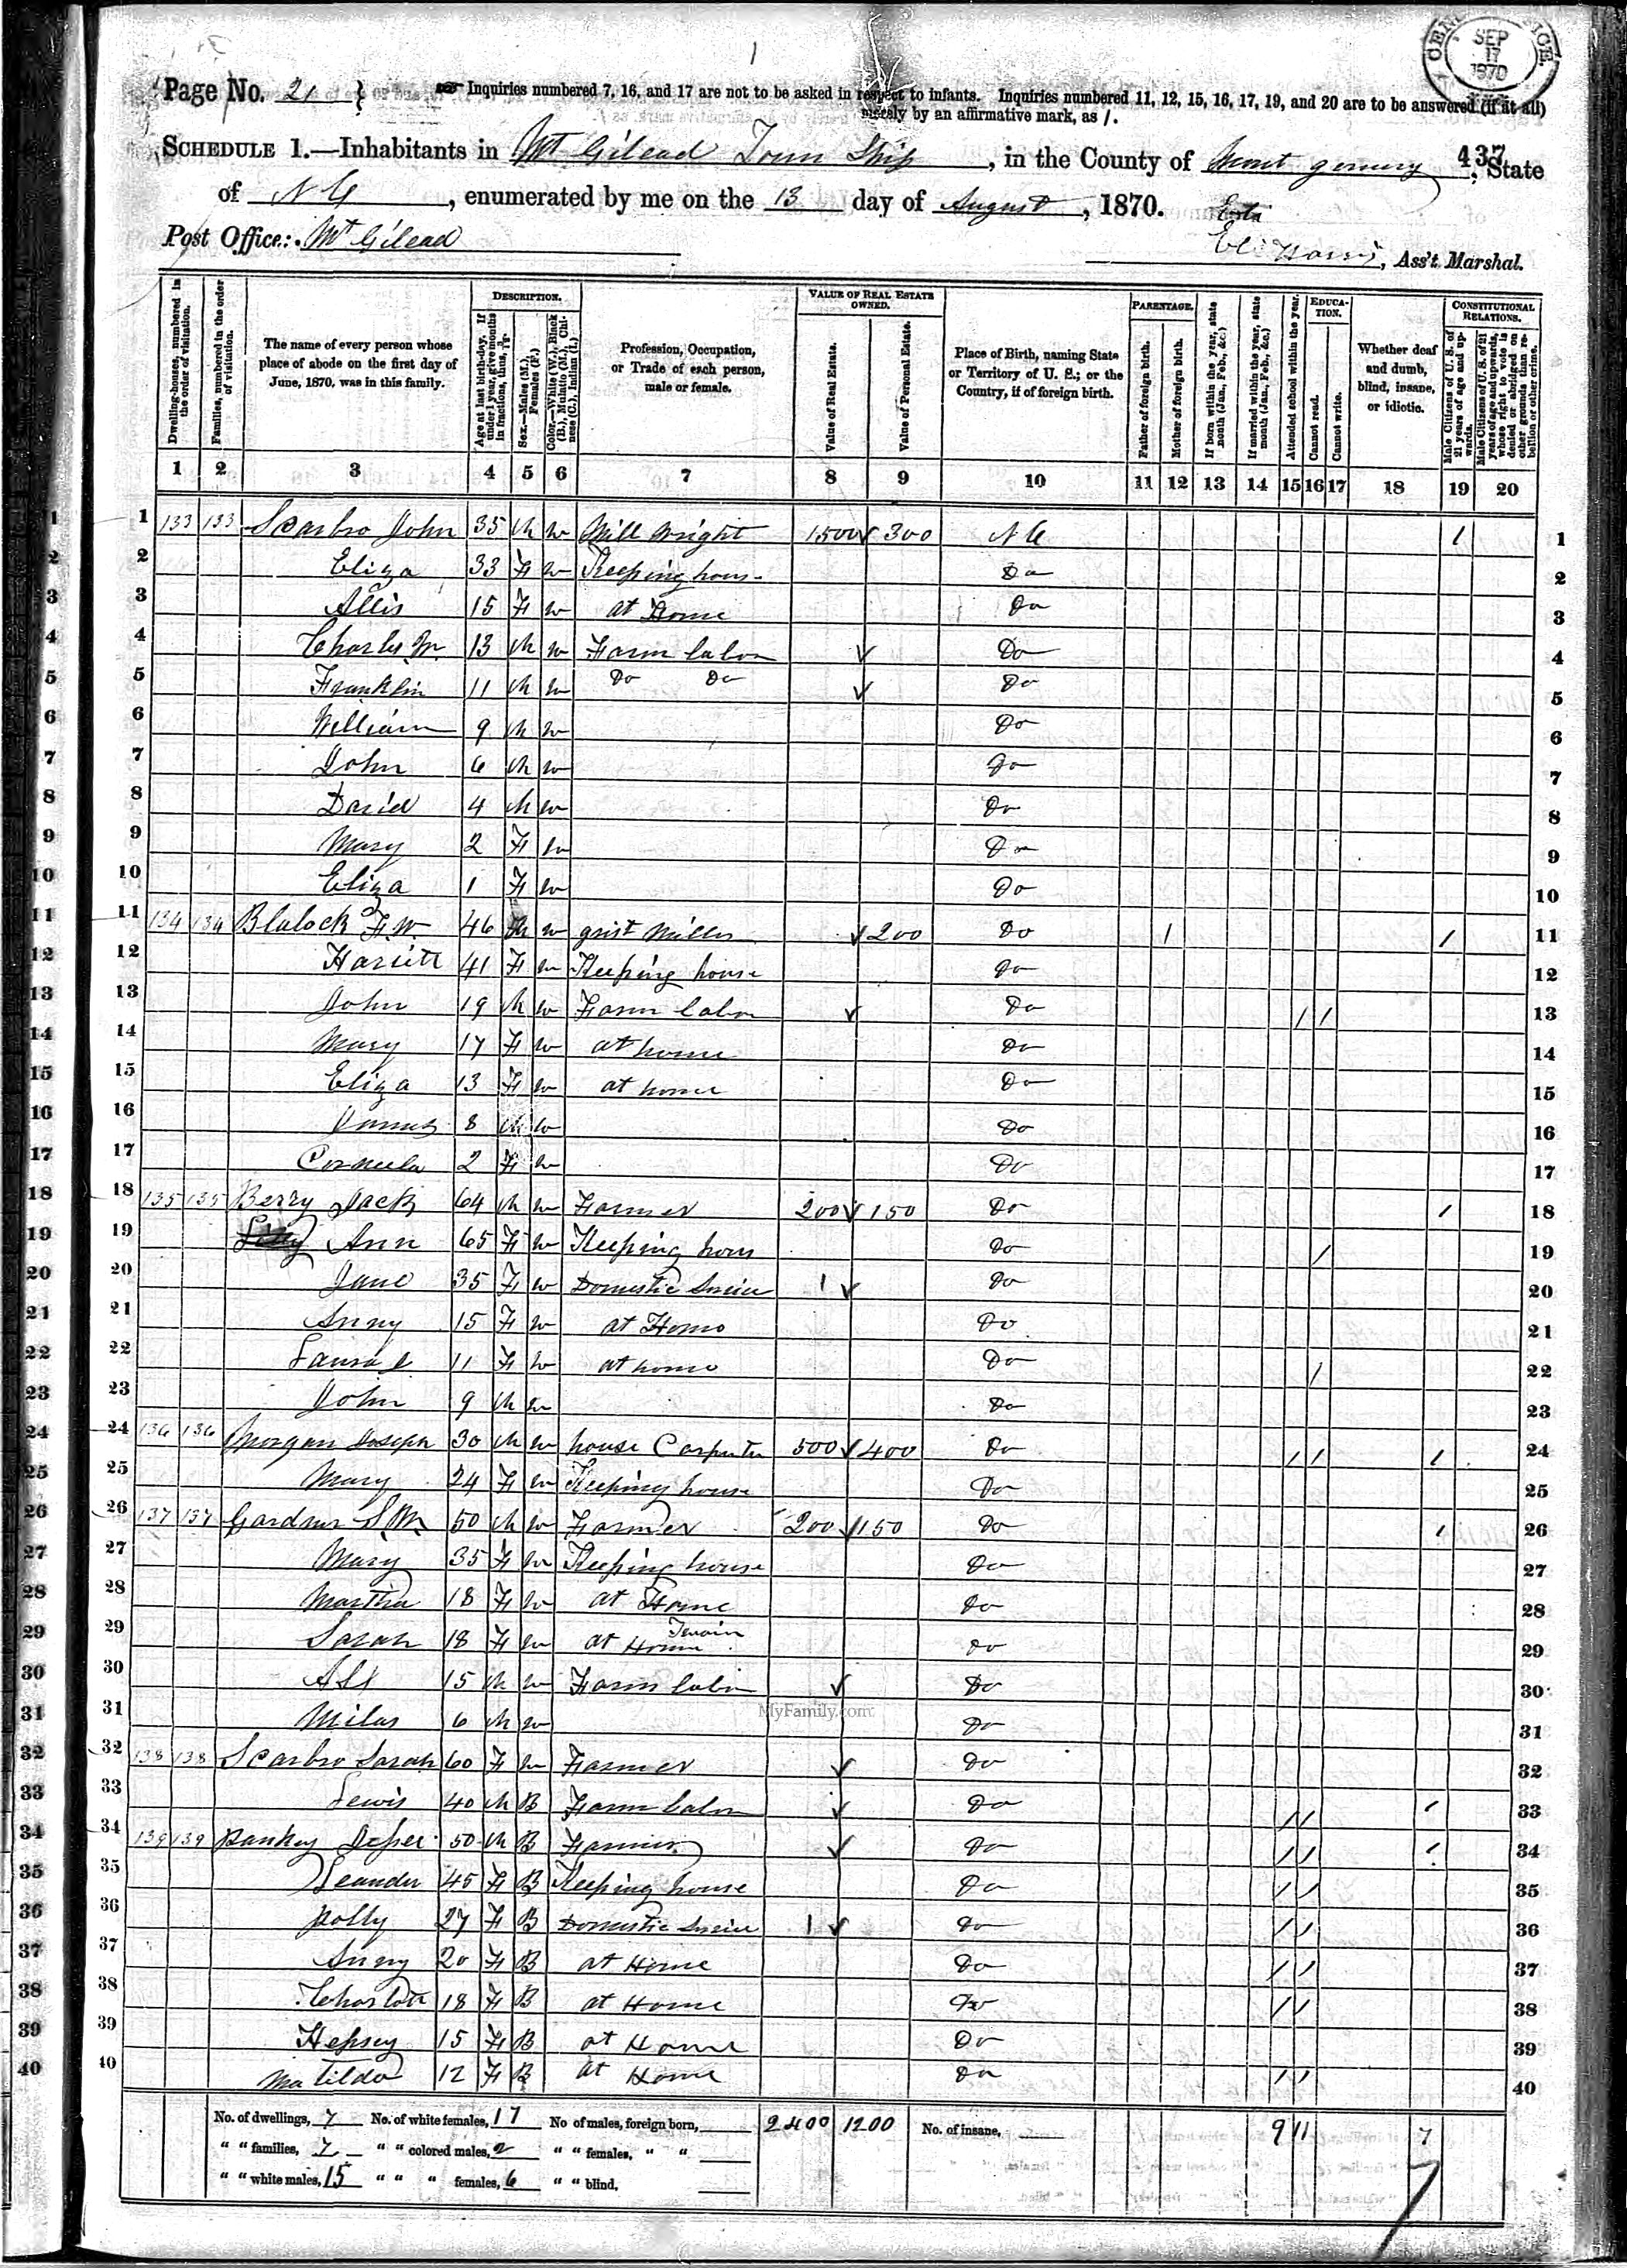 CENSUS OFFICE. SEP 17 1870
Page No. 21 } Inquiries numbered 7, 16, and 17 are not to be asked in respect to infants. Inquiries numbered 11, 12, 15, 16, 17, 19, and 20 are to be answered (if at all)
merely by an affirmative mark, as /.
SCHEDULE 1.—Inhabitants in Mt Gilead Town Ship, in the County of Mont gomery, State
437
of N C, enumerated by me on the 13 day of August, 1870.
Post Office: Mt Gilead
Eli Harris, Ass't Marshal.
Dwelling-houses, numbered in the order of visitation.
Families, numbered in the order of visitation.
The name of every person whose place of abode on the first day of June, 1870, was in this family.
DESCRIPTION.
Age at last birth-day. If under 1 year, give months in fractions, thus, 3/12.
Sex.—Males (M.), Females (F.)
Color.—White (W.), Black (B.), Mulatto (M.), Chinese (C.), Indian (I.)
Profession, Occupation, or Trade of each person, male or female.
VALUE OF REAL ESTATE OWNED.
Value of Real Estate.
Value of Personal Estate.
Place of Birth, naming State or Territory of U. S.; or the Country, if of foreign birth.
PARENTAGE.
Father of foreign birth.
Mother of foreign birth.
If born within the year, state month (Jan., Feb., &c.)
If married within the year, state month (Jan., Feb., &c.)
Attended school within the year.
EDUCATION.
Cannot read.
Cannot write.
Whether deaf and dumb, blind, insane, or idiotic.
CONSTITUTIONAL RELATIONS.
Male Citizens of U. S. of 21 years of age and upwards.
Male Citizens of U. S. of 21 years of age and upwards, whose right to vote is denied or abridged on other grounds than rebellion or other crime.
1 2 3 4 5 6 7 8 9 10 11 12 13 14 15 16 17 18 19 20
1 133 133 Scarbro John 35 M W Mill Wright 1500 √ 300 N C / 1
2 Eliza 33 F W Keeping hous Do 2
3 Allis 15 F W at Home Do 3
4 Charles M 13 M W Farm labor √ Do 4
5 Franklin 11 M W Do Do √ Do 5
6 William 9 M W Do 6
7 John 6 M W Do 7
8 David 4 M W Do 8
9 Mary 2 F W Do 9
10 Eliza 1 F W Do 10
11 134 134 Blalock F W 46 M W grist Miller √ 200 Do / / 11
12 Hariett 41 F W Keeping house Do 12
13 John 19 M W Farm labor √ Do / / 13
14 Mary 17 F W at home Do 14
15 Eliza 13 F W at home Do 15
16 James 8 M W Do 16
17 Cornelia 2 F W Do 17
18 135 135 Berry Jack 64 M W Farmer 200 √ 150 Do / 18
19 Ann 65 F W Keeping hous Do / 19
20 Jane 35 F W Domestic Service 1 √ Do 20
21 Anny 15 F W at Home Do 21
22 Laura 11 F W at home Do / 22
23 John 9 M W Do 23
24 136 136 Morgan Joseph 30 M W house Carpenter 500 √ 400 Do / / / 24
25 Mary 24 F W Keeping house Do 25
26 137 137 Gardner S M 50 M W Farmer 200 √ 150 Do / 26
27 Mary 35 F W Keeping house Do 27
28 Martha 18 F W at Home Do 28
29 Sarah 18 F W at Home Twain Do 29
30 15 M W Farm labor √ Do 30
31 Milas 6 M W Do 31
MyFamily.com
32 138 138 Scarbro Sarah 60 F W Farmer √ Do 32
33 Lewis 40 M B Farm labor √ Do / / / 33
34 139 139 Pankey 50 M B Farmer √ Do / / / 34
35 Leander 45 F B Keeping house Do / / 35
36 Polly 27 F B Domestic Service 1 √ Do / / 36
37 Anny 20 F B at Home Do / / 37
38 Charlott 18 F B at Home Do / / 38
39 Hepsey 15 F B at Home Do 39
40 Matilda 12 F B at Home Do / / 40
No. of dwellings, 7 No. of white females, 17 No of males, foreign born, 2400 1200 No. of insane, 9 11 7
" " families, 7 " " colored males, 2 " " females, " "
" " white males, 15 " " " females, 6 " " blind,